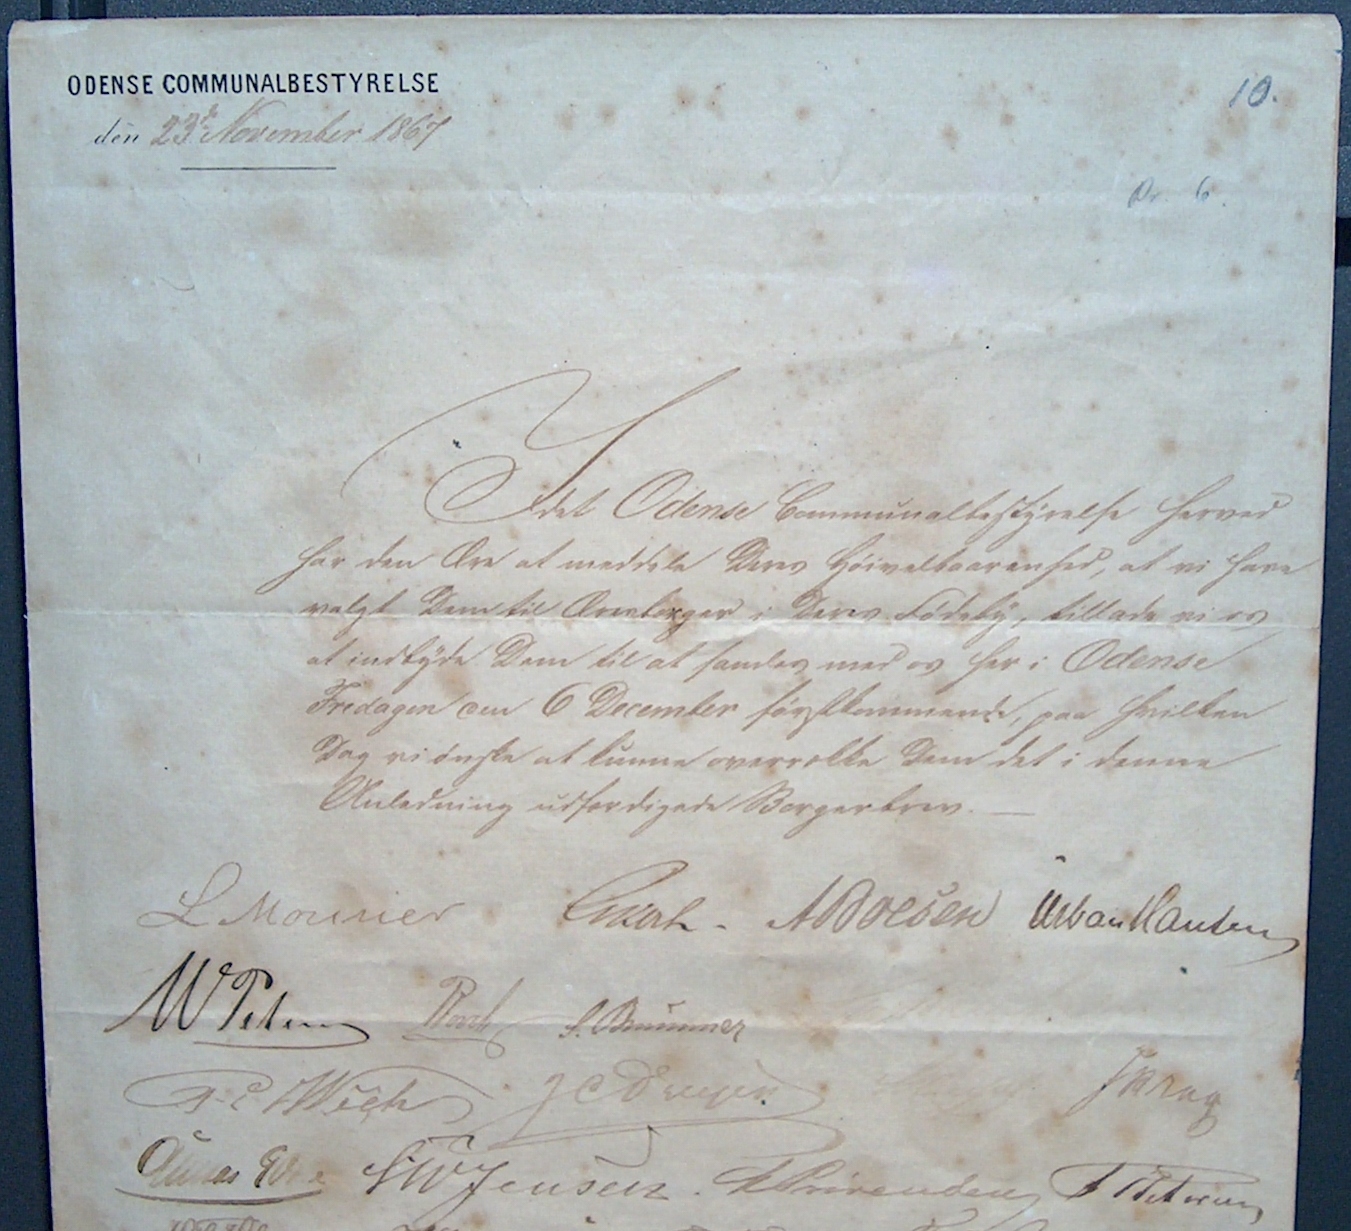 ODENSE COMMUNALBESTYRELSE
10.
den 23de November 1867
Nr. 6.
Idet Odense Communalbestyrelse herved
har den Ære at meddele Deres Høivelbaarenhed, at vi have
valgt Dem til Æresborger i Deres Fødeby, tillade vi os
at indbyde Dem til at samles med os her i Odense
Fredagen den 6 December førstkommende, paa hvilken
Dag vi ønske at kunne overrække Dem det i denne
Anledning udfærdigede Borgerbrev.
L Mourier Koch. Urban Hansen
W Petersen S. Brummer
Wich J C Dreyer
SW Jensen. T Petersen